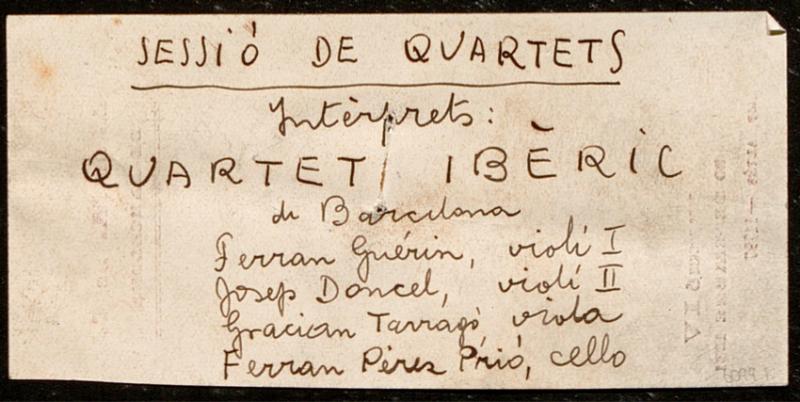 SESSIÓ DE QUARTETS
Intèrprets:
QUARTET IBÈRIC
de Barcelona
Ferran Guérin, violí I
Josep Doncel, violí II
Gracian Tarragó, viola
Ferran Pérez Prió, cello